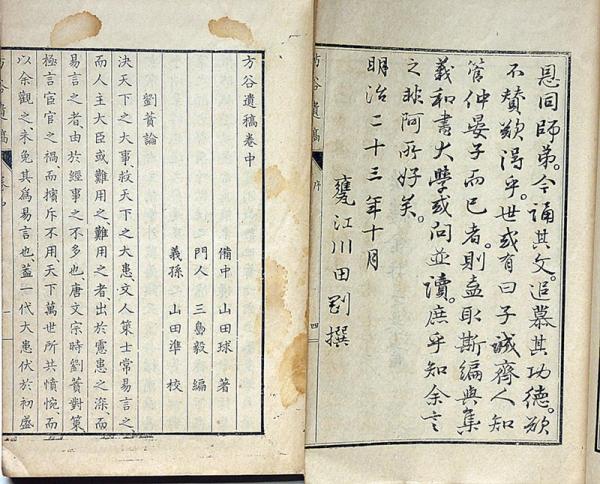 恩同師弟。今誦其文。追慕其功德。欲
不賛歎得乎。世或有曰子誠齊人知
管仲晏子而已者。則盍取斯編與集
義和書大學或問並讀。庶乎知余言
之非阿所好矣。
明治二十三年十月
甕江川田剛撰
方谷遺稿
序
四
方谷遺稿卷中
備中 山田球 著
門人 三島毅 編
義孫 山田準 校
劉蕡論
決天下之大事、救天下之大患、文人策士常易言之、
而人主大臣或難用之、難用之者、出於慮患之深、而
易言之者、由於經事之不多也、唐文宗時劉蕡對策
極言宦官之禍、而擯斥不用、天下萬世所共憤惋、而
以余觀之、未免其爲易言也、蓋一代大患伏於初盛
方谷遺稿
一